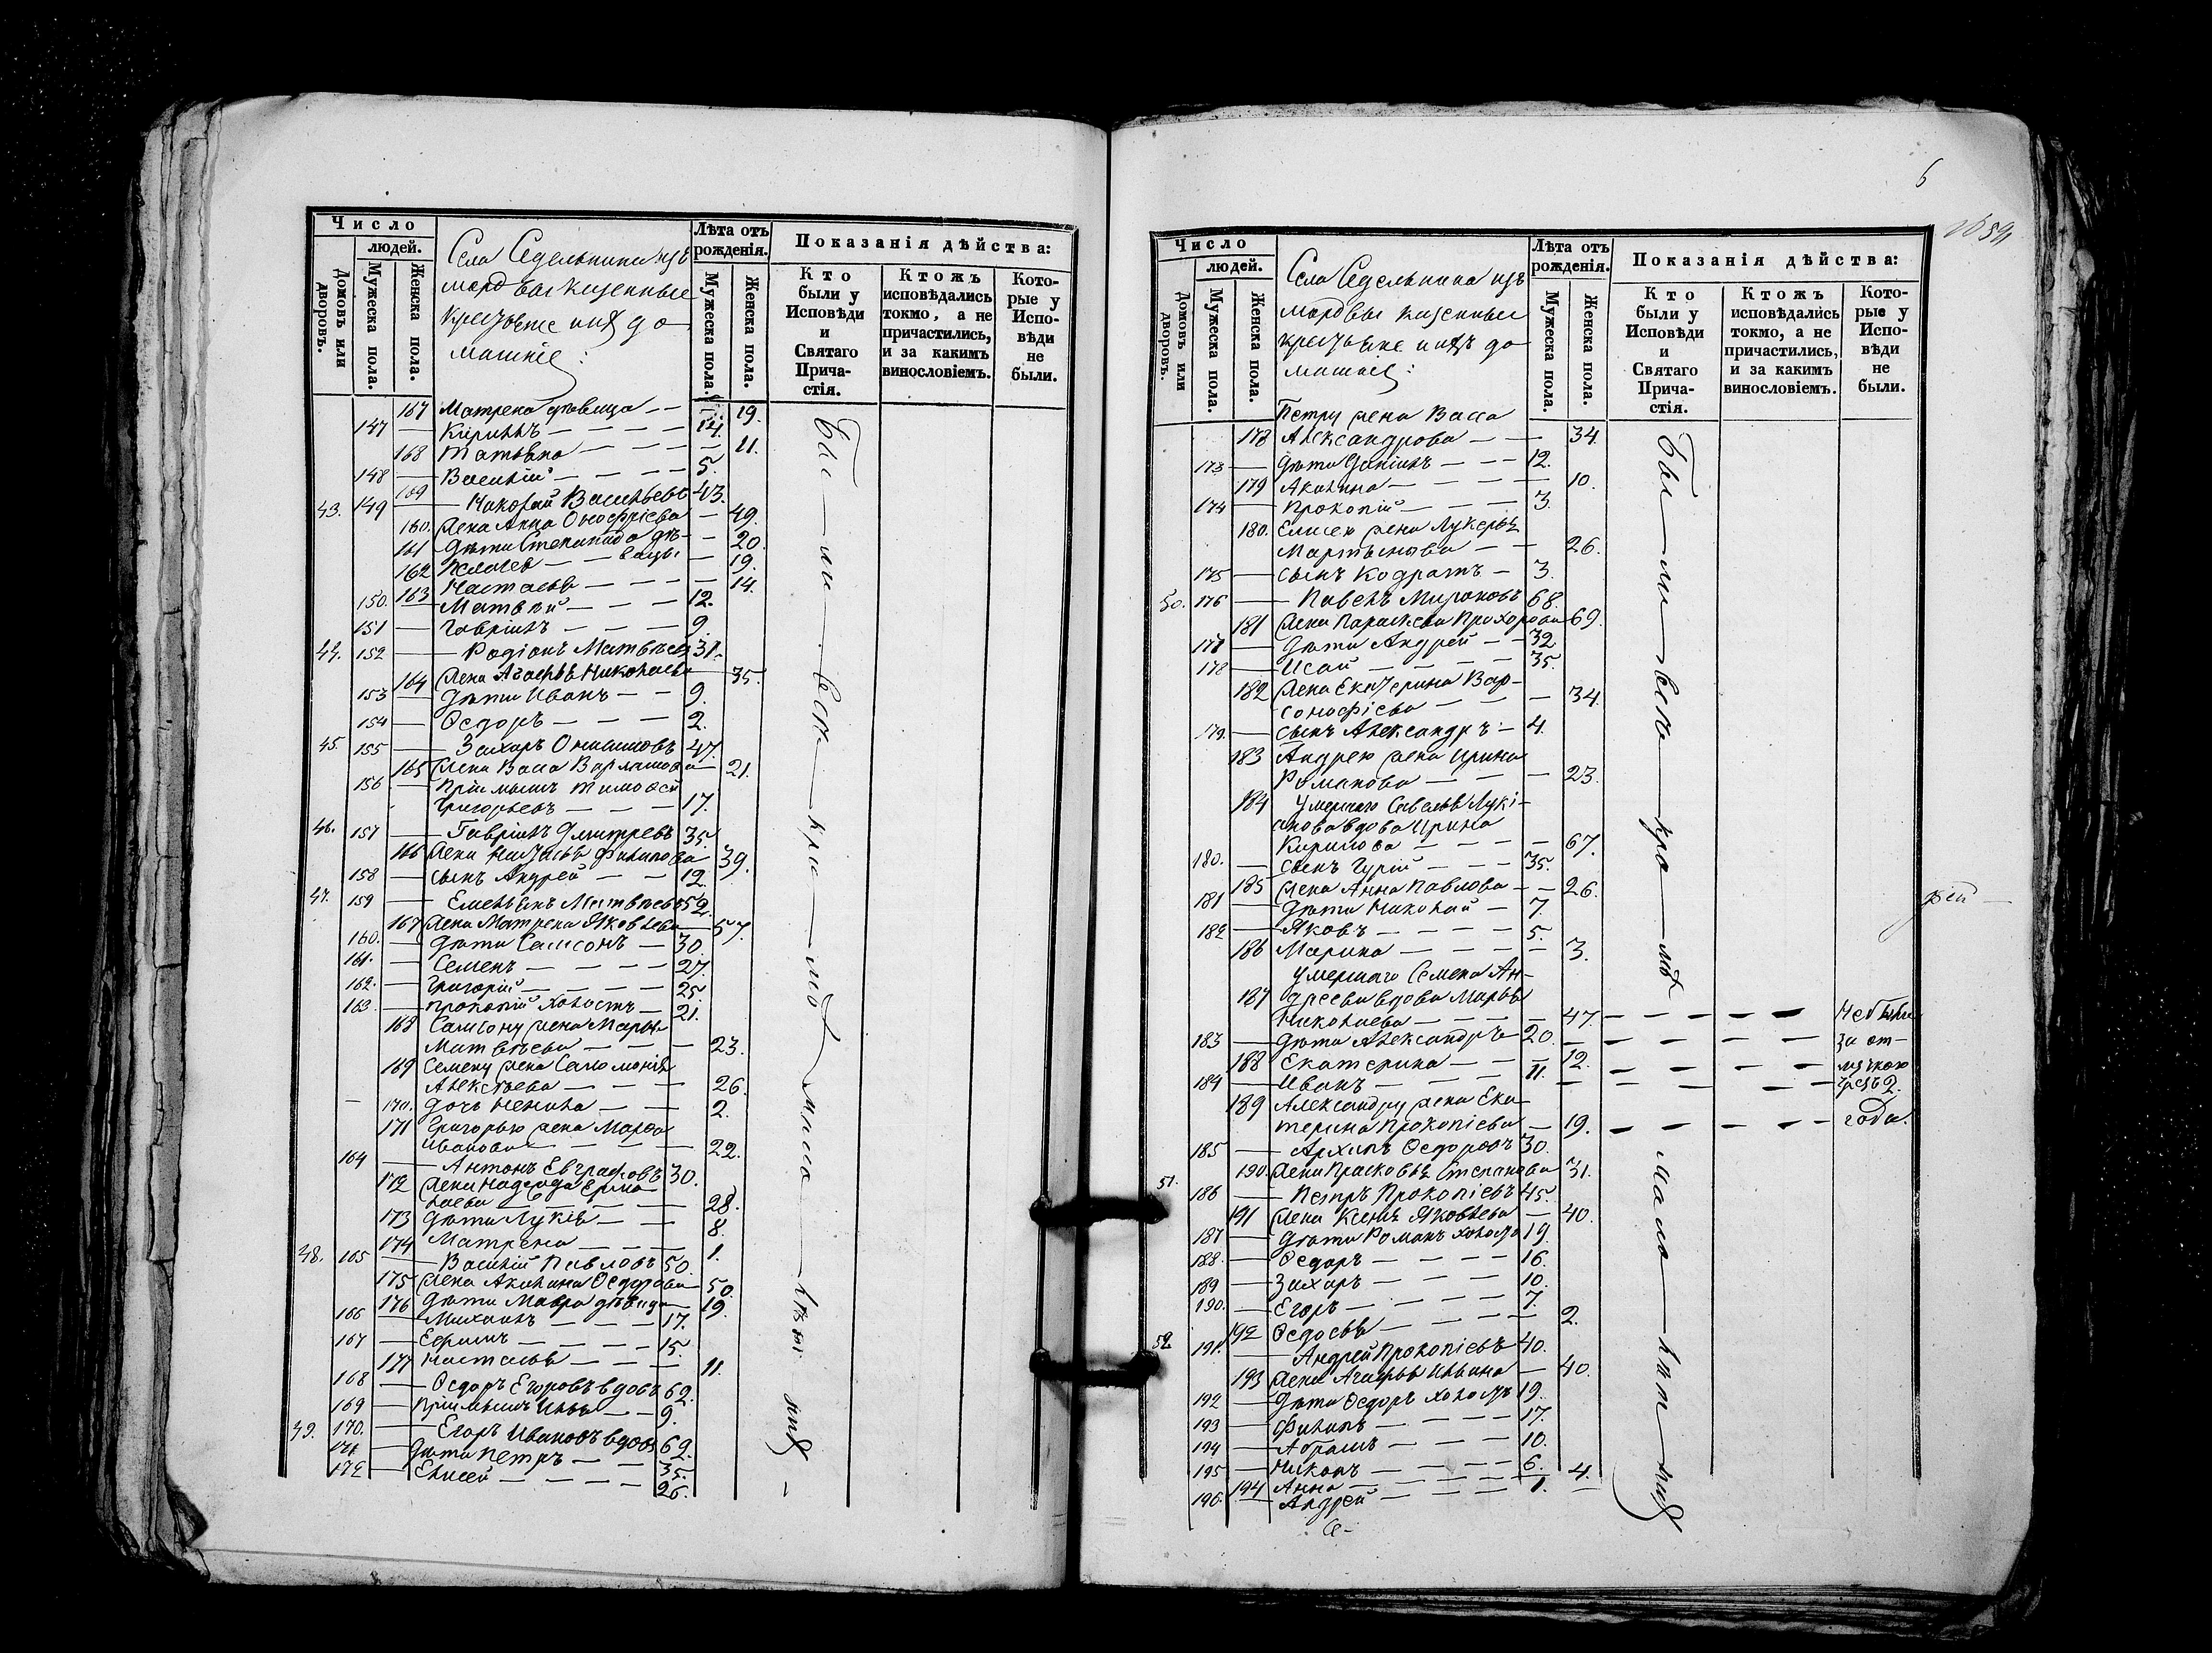 Число
людей.
Домовъ или дворовъ.
Мужеска пола.
Женска пола.
Села Седельника изъ
мордвы казенные
крестьяне и ихъ до
машніе:
Лѣта отъ рожденія.
Мужеска пола.
Женска пола.
Показанія дѣйства:
Кто были у Исповѣди и Святаго Прича-стія.
Ктожъ исповѣдались токмо, а не причастились, и за какимъ винословіемъ.
Кото-рые у Испо-вѣди не были.
157 Матрена дѣвица — — 19.
147 — Кирилъ — — — — 14.
158 Татьяна — — — — 11.
148 — Василій — — — — 5.
43. 149 159 — Николай Васильевъ 43.
160. Жена Анна Онофріева — 49.
161 Дѣти Степанида дѣ- — 20.
162 Пелагея — — вицы — 19.
163 Настасья — — — — 14.
150. — Матвѣй — — — 12.
151 — Гаврилъ — — — 9.
44. 152 — Родіонъ Матвѣевъ 31.
164 Жена Агафья Николаева 35.
153 — Дѣти Иванъ — — 9.
154 — Ѳедоръ — — — 2.
45. 155 — Захаръ Онисимовъ 47.
165 Жена Васа Варламова — 21.
156 — Пріимышъ Тимоѳей
Григорьевъ — — — 17.
46. 157 — Гаврилъ Дмитревъ 35.
166 Жена Настасья Филипова 39.
158 — Сынъ Андрей — — 12.
47. 159 — Емельянъ Матвѣевъ 52.
167 Жена Матрена Яковлева — 57.
160. — Дѣти Самсонъ — 30.
161. — Семенъ — — — — 27.
162. — Григорій — — — — 25.
163. — Прокопій холостъ — 21.
168 Самсону жена Марья
Матвѣева — — — — 23.
169 Семену жена Саломонія
Алексѣева — — — — 26.
170. Дочь Ненила — — 2.
171 Григорью жена Марѳа
Иванова — — — — 22.
164 — Антонъ Евграфовъ 30.
172 Жена Надежда Ермо-
лаева — — — — — 28.
173 Дѣти Лукія — — 8.
174 Матрена — — — — 1.
48. 165 — Василій Павловъ 50.
175 Жена Акилина Ѳедорова — 50.
176 Дѣти Мавра дѣвица — 19.
166 — Михаилъ — — — 17.
167 — Ефимъ — — — — 15.
177 Настасья — — — — 11.
168 — Ѳедоръ Егоровъ вдовъ 62.
169 — Пріимышъ Илья — — 9.
49. 170. — Егоръ Ивановъ вдовъ 69.
171 — Дѣти Петръ — — 35.
172 — Елисей — — — — 26.
6
Число
людей.
Домовъ или дворовъ.
Мужеска пола.
Женска пола.
Села Седельника изъ
мордвы казенные
крестьяне и ихъ до
машніе:
Лѣта отъ рожденія.
Мужеска пола.
Женска пола.
Показанія дѣйства:
Кто были у Исповѣди и Святаго Прича-стія.
Ктожъ исповѣдались токмо, а не причастились, и за какимъ винословіемъ.
Кото-рые у Испо-вѣди не были.
Петру жена Васса
178 Александрова — — — 34.
173 — Дѣти Данилъ — — 12.
179 Акилина — — — — — 10.
174 — Прокопій — — — — 3.
180. Елисею жена Лукерья
Мартынова — — — 26.
175 — Сынъ Кодратъ — 3.
50. 176 — Павелъ Мироновъ 68.
181 Жена Парасковья Прохорова 69.
177 — Дѣти Андрей — — 32.
178 — Исай — — — — 35.
182 Жена Екатерина Вар-
сонофіева — — — — 34.
179. — Сынъ Александръ — 4.
183 Андрею жена Ирина
Романова — — — — 23.
184 Умершаго Савелья Луки-
анова вдова Ирина
Кирилова — — — — 67.
180. — Сынъ Гурій — — — 35.
185 Жена Анна Павлова — — 26.
181 — Дѣти Николай — 7.
182 — Яковъ — — — — 5.
186 Марина — — — — — 3.
Умершаго Семена Ан-
187 дреева вдова Марья
Николаева — — — — 47. — — — — — Не были
183 — Дѣти Александръ — 20. — — — — — за от-
188 Екатерина — — — 12. — — — —
184 — Иванъ — — — — 11. — — — — — чрезъ 2.
189 Александру жена Ека-
терина Прокопіева — 19. — — — — — года.
185 — Архипъ Ѳедоровъ 30.
190. Жена Прасковья Степанова 31.
51. 186 — Петръ Прокопіевъ 45.
191 Жена Ксенія Яковлева — 40.
187 — Дѣти Романъ холостъ 19.
188. — Ѳедоръ — — — — 16.
189 — Захаръ — — — — 10.
190. — Егоръ — — — — 7.
192 Ѳедосья — — — — — 2.
52. 191. — Андрей Прокопіевъ 40.
193 Жена Агафья Ильина — 40.
192 — Дѣти Ѳедоръ холостъ 19.
193 — Филипъ — — — — 17.
194 — Абрамъ — — — — 10.
195 — Никонъ — — — — 6.
194 Анна — — — — — 4.
196. — Андрей — — — — 1.